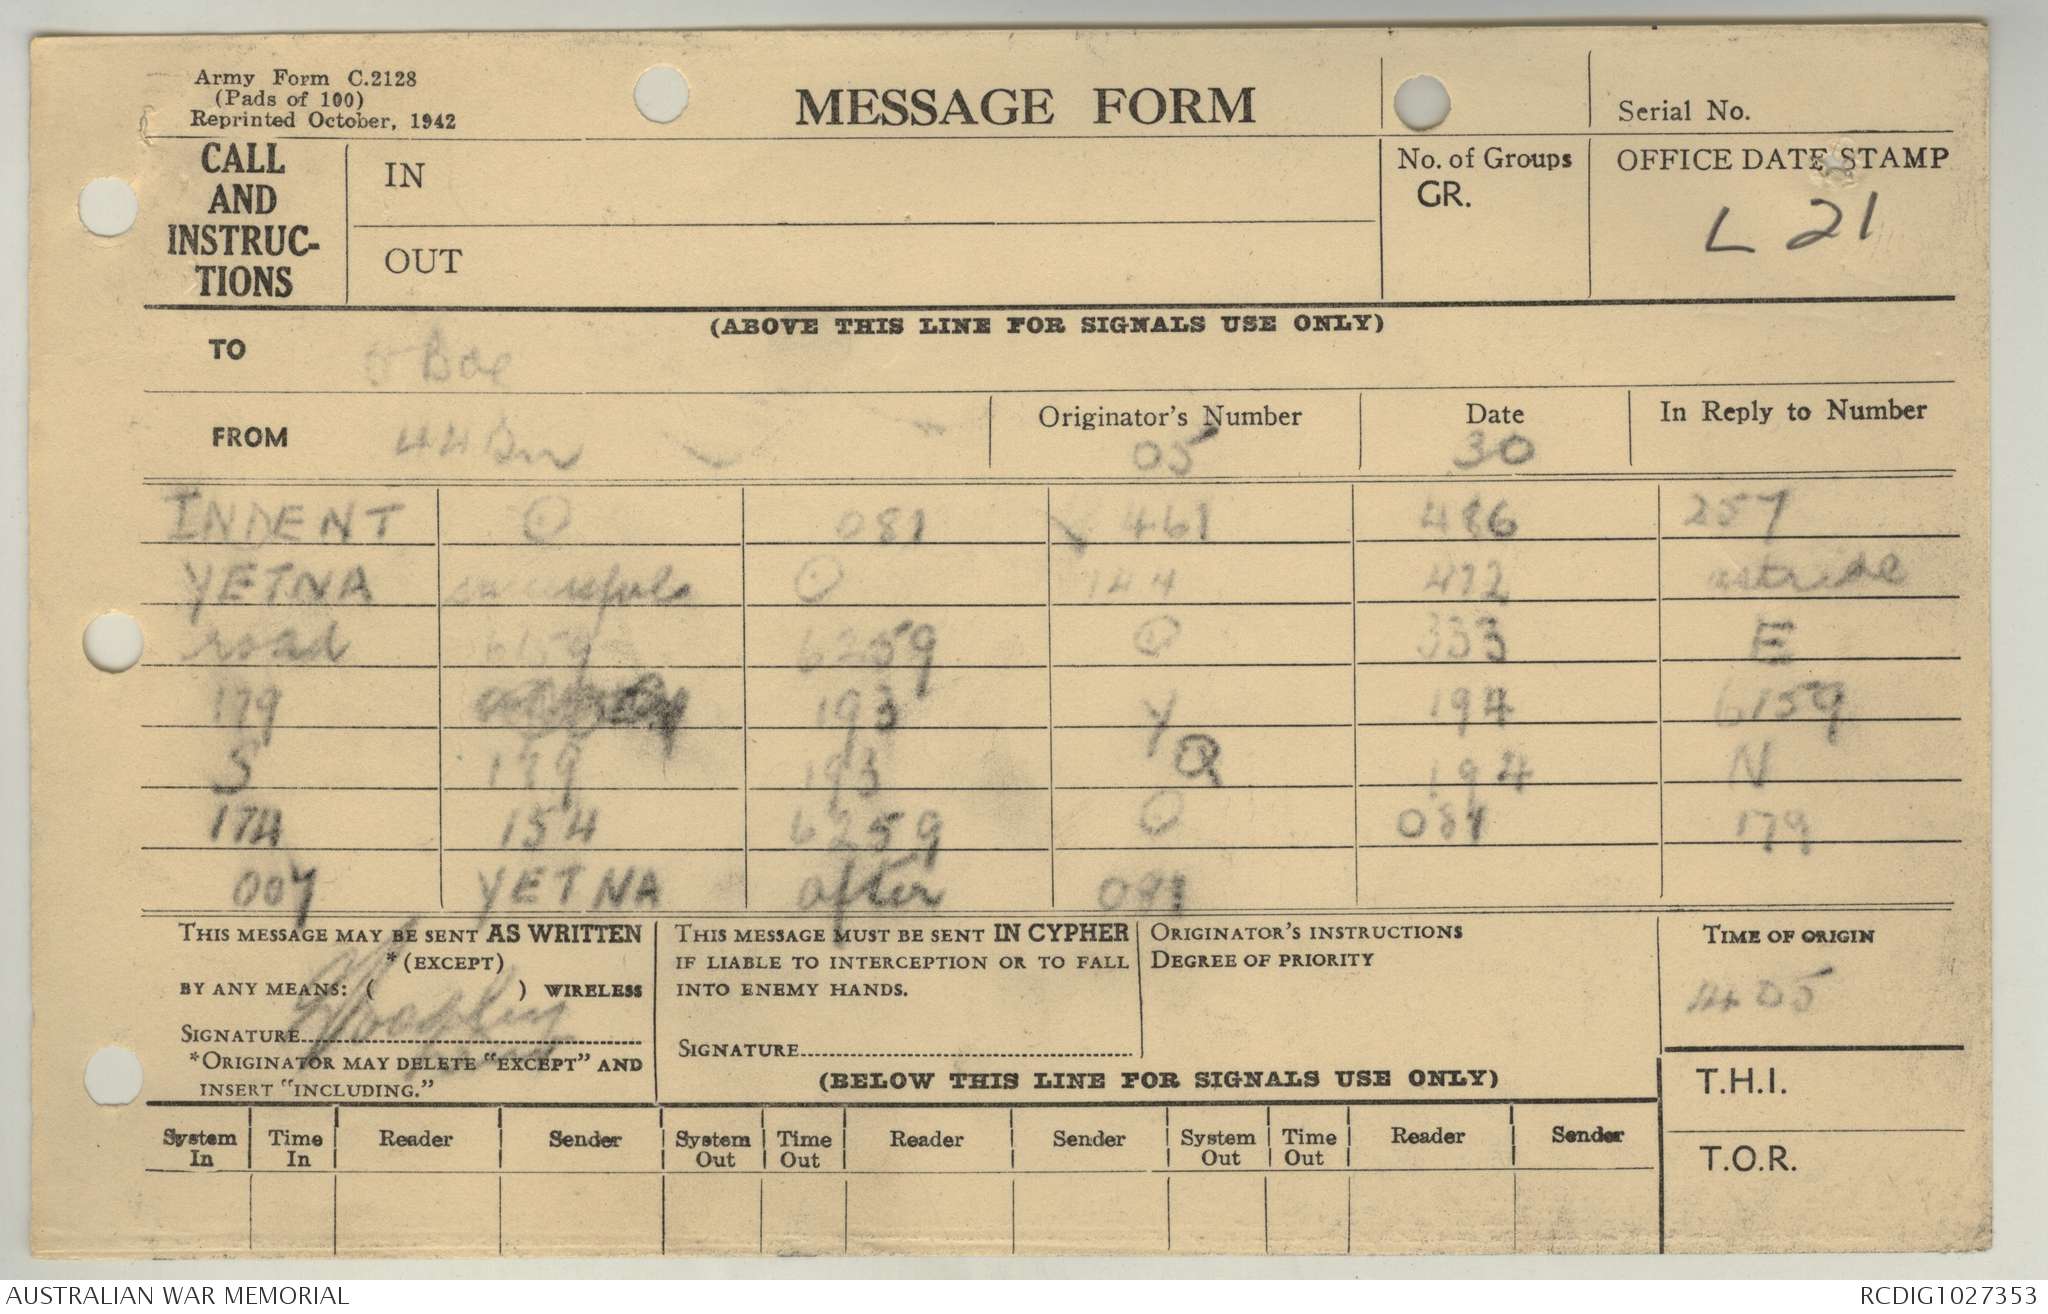 Army Form C.2128
(Pads of 100)
Reprinted October, 1942
MESSAGE FORM
Serial No.
CALL AND INSTRUC-TIONS
IN
OUT
No. of Groups
GR.
OFFICE DATE STAMP
L 21
(ABOVE THIS LINE FOR SIGNALS USE ONLY)
TO
FROM 44 Bn
Originator's Number
05
Date
30
In Reply to Number
INDENT ⊙ 081 461 486 257
YETNA ⊙ 144 472 astride
road 6159 6259 ⊙ 333 E
179 193 Y 194 6159
S 179 193 Q 194 N
174 154 6259 ⊙ 081 179
007 YETNA after 091
THIS MESSAGE MAY BE SENT AS WRITTEN
*(EXCEPT)
BY ANY MEANS: ( ) WIRELESS
SIGNATURE
*ORIGINATOR MAY DELETE "EXCEPT" AND
INSERT "INCLUDING."
THIS MESSAGE MUST BE SENT IN CYPHER
IF LIABLE TO INTERCEPTION OR TO FALL
INTO ENEMY HANDS.
SIGNATURE
ORIGINATOR'S INSTRUCTIONS
DEGREE OF PRIORITY
TIME OF ORIGIN
1405
(BELOW THIS LINE FOR SIGNALS USE ONLY)
T.H.I.
T.O.R.
System In Time In Reader Sender System Out Time Out Reader Sender System Out Time Out Reader Sender
AUSTRALIAN WAR MEMORIAL
RCDIG1027353